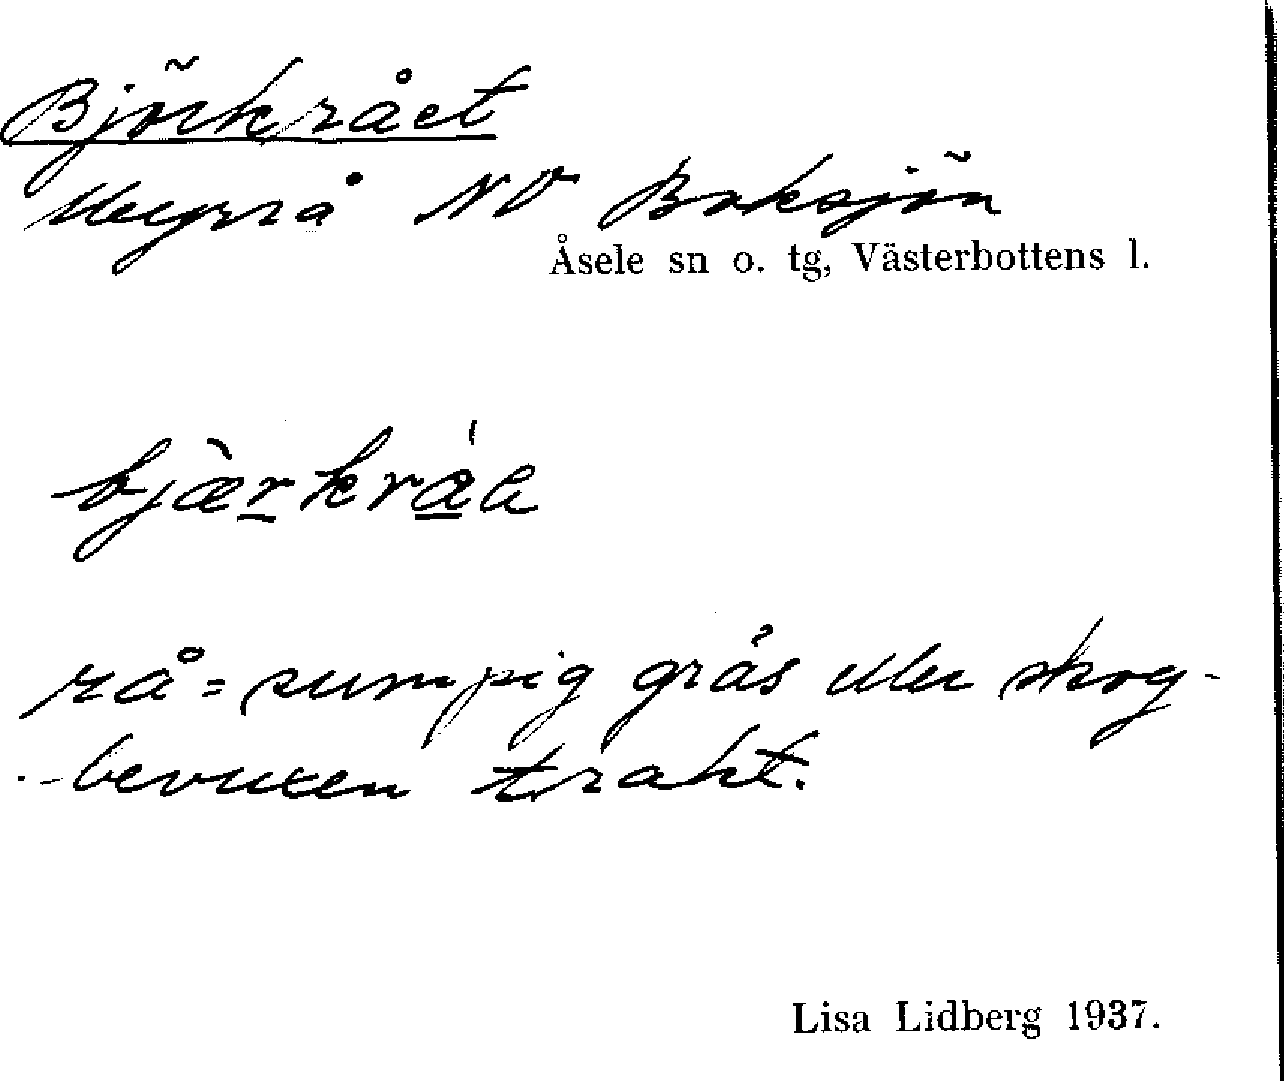 Björkrået
Myrrå NV Boksjön
Åsele sn o. tg, Västerbottens l.
bjæ̀rkrá̱a
rå = sumpig gräs eller skog-
-bevuxen trakt.
Lisa Lidberg 1937.